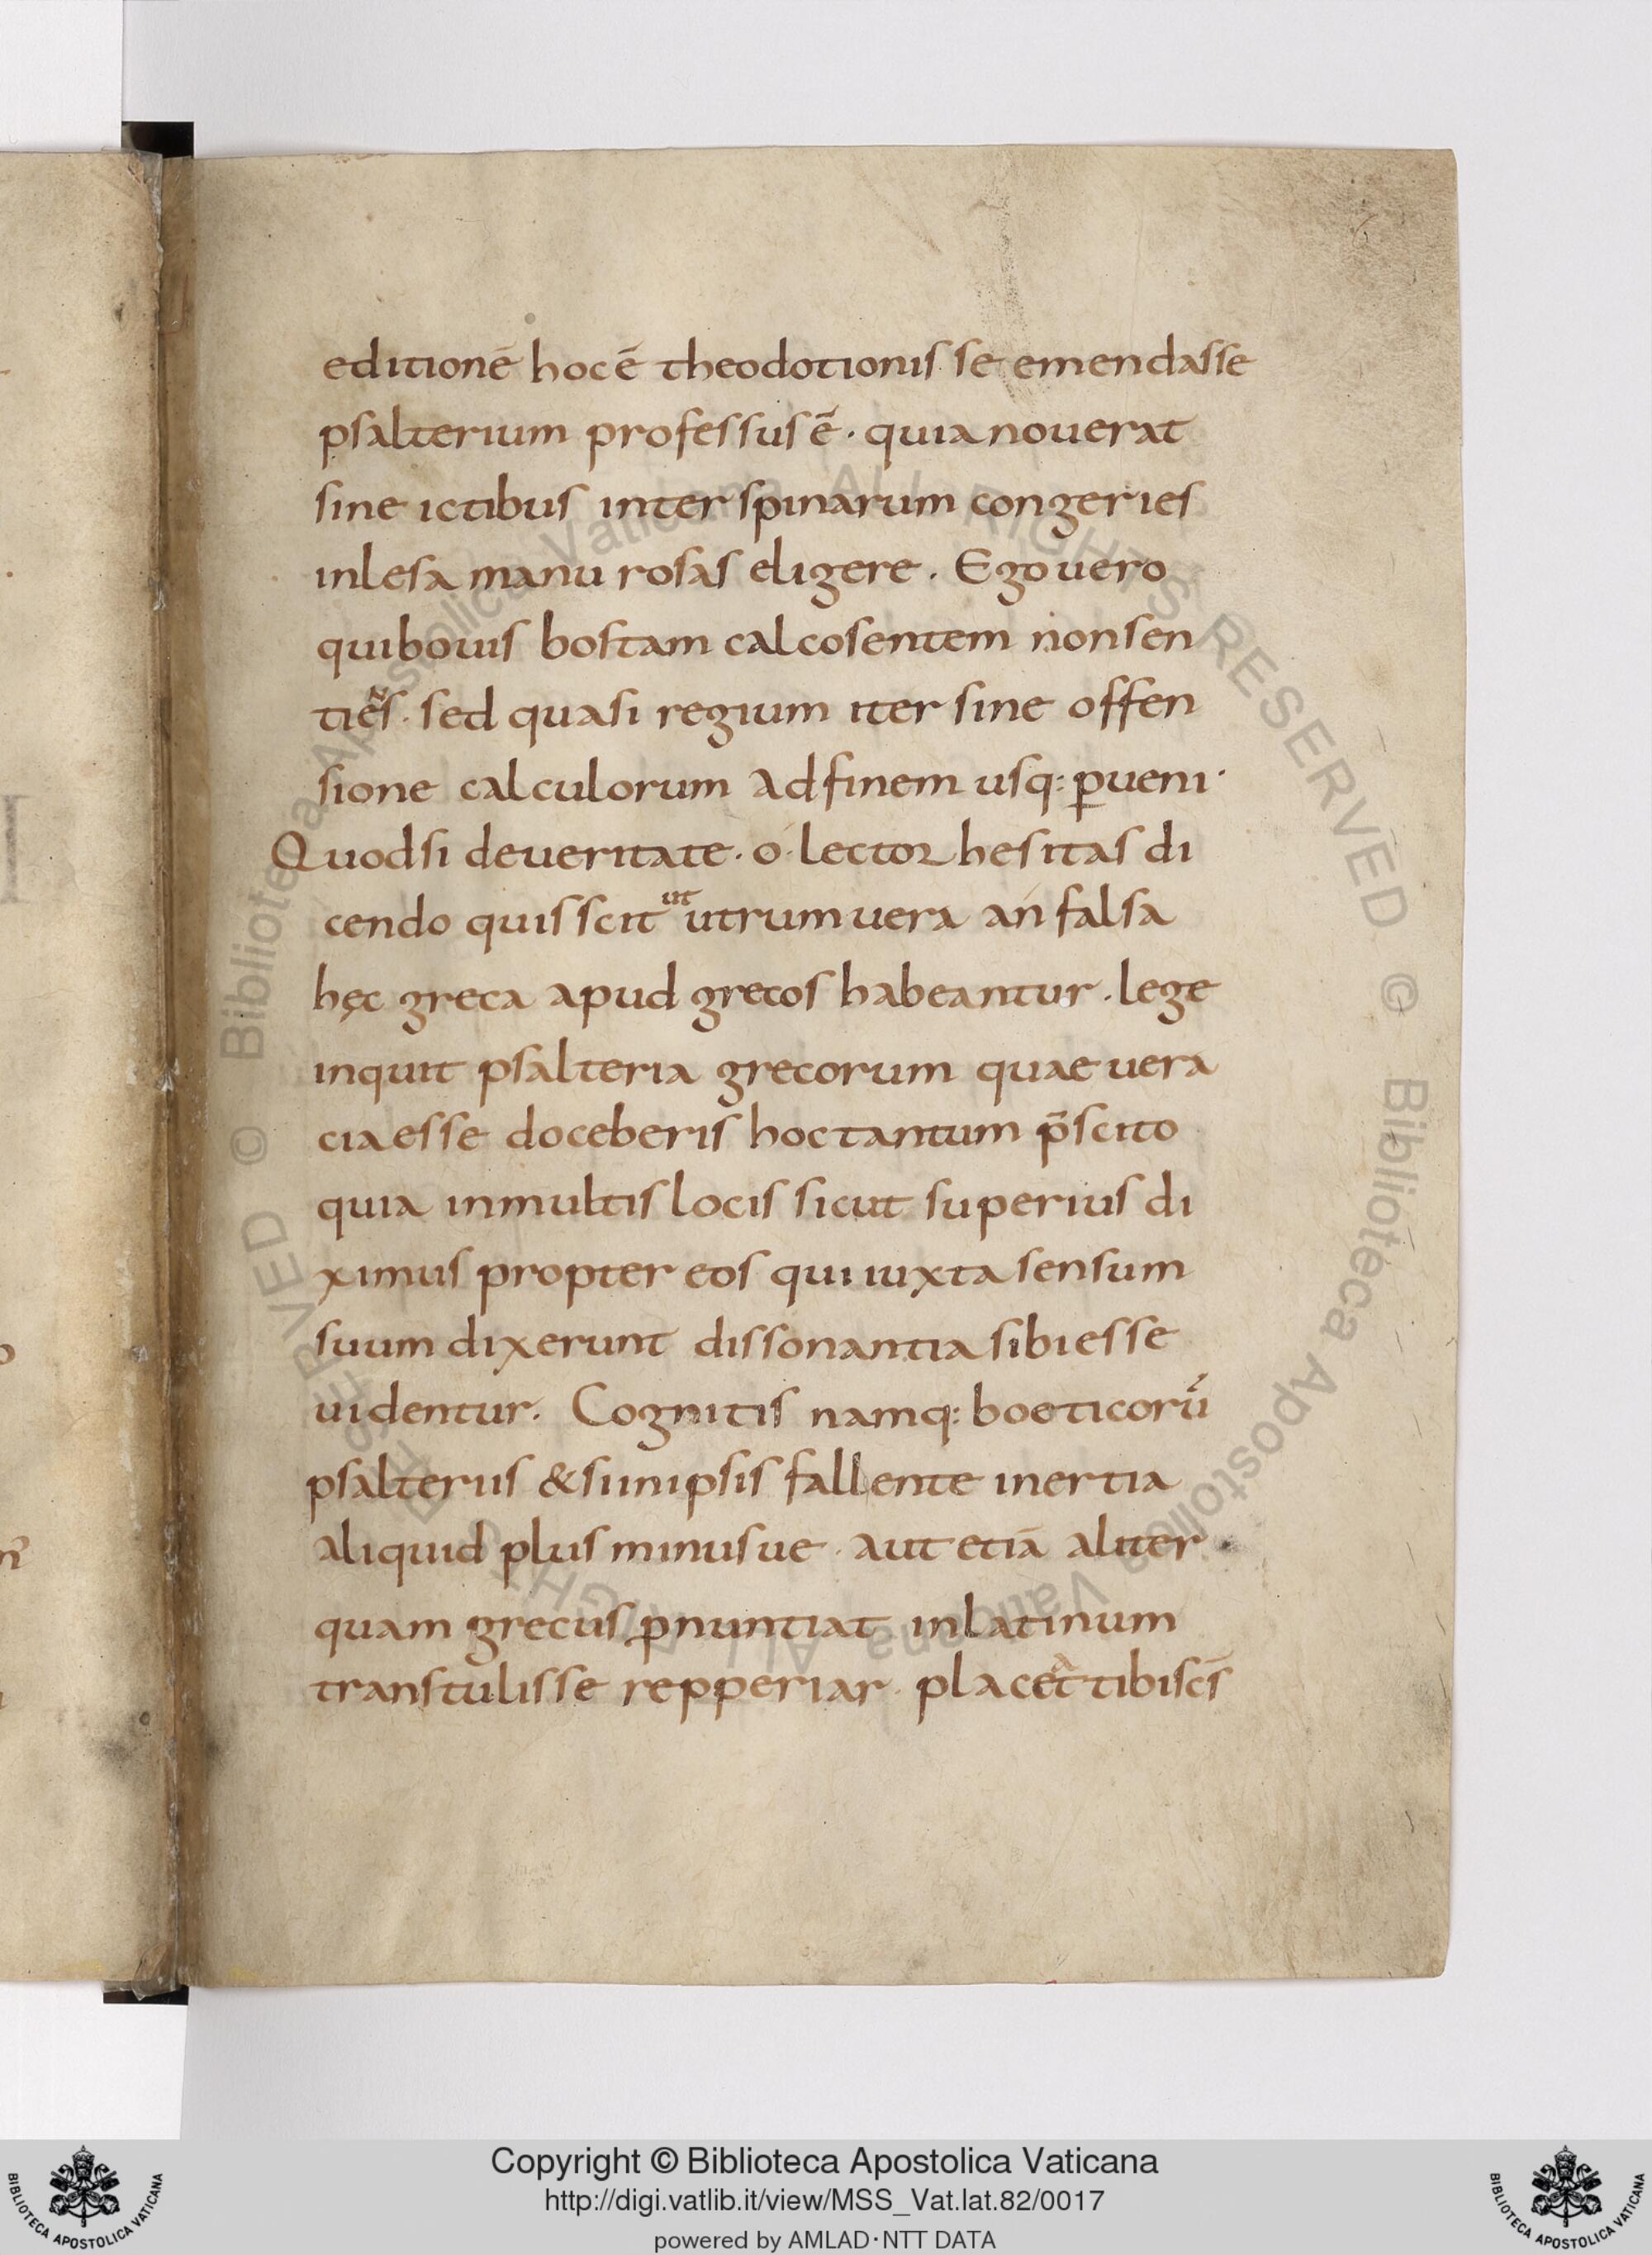 editionē hocē theodotionis se emendasse
psalterium professus ē · quia nouerat
sine ictibus inter spinarum congeries
inlesa manu rosas eligere . Ego uero
qui bouis bostam calco sentem non sen
tiēs · sed quasi regium iter sine offen
sione calculorum ad finem usq: ꝑueni ·
Quodsi de ueritate · o · lector hesitas di
cendo quis scit ut utrum uera an falsa
hęc greca apud grecos habeantur . lege
inquit psalteria grecorum quae uera
cia esse doceberis hoc tantum p̄scito
quia in multis locis sicut superius di
ximus propter eos qui iuxta sensum
suum dixerunt dissonantia sibi esse
uidentur . Cognitis namq: boeticorū
psalteriis & si in ipsis fallente inertia
aliquid plus minus ue · aut etiā aliter ·
quam grecus ꝓnuntiat in latinum
transtulisse repperiar · placeat tibi scīs
© Biblioteca Apostolica Vaticana ALL RIGHTS RESERVED © Biblioteca Apostolica Vaticana ALL RIGHTS RESERVED
Copyright © Biblioteca Apostolica Vaticana
http://digi.vatlib.it/view/MSS_Vat.lat.82/0017
powered by AMLAD·NTT DATA
BIBLIOTECA APOSTOLICA VATICANA
BIBLIOTECA APOSTOLICA VATICANA